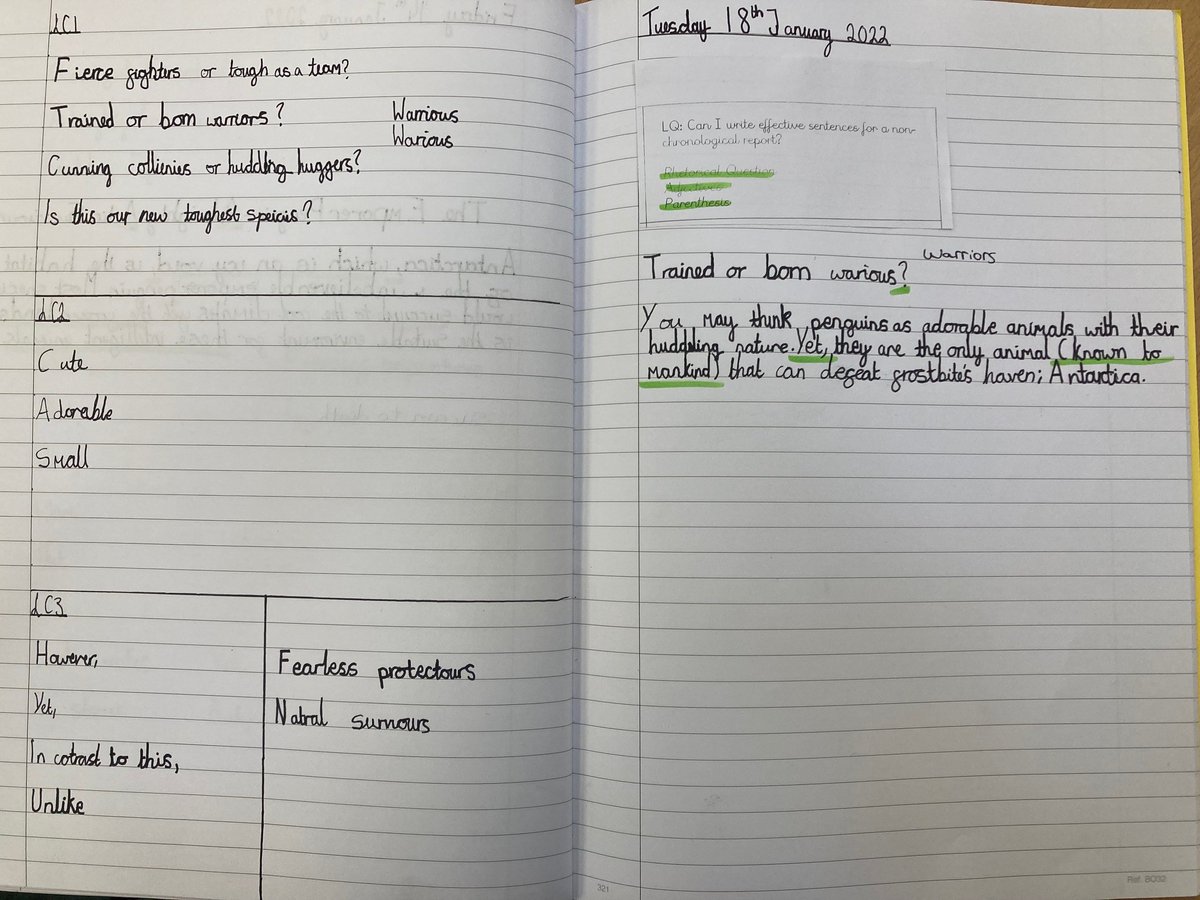 LC1
Fierce fighters or tough as a team?
Trained or born warriors?
Warrious
Warious
Cunning collienies or huddling huggers?
Is this our new toughest speicis?
LC2
Cute
Adorable
Small
LC3
However,
Yet,
In cotrast to this,
Unlike
Fearless protectours
Natral
321
Tuesday 18th January 2022
LQ: Can I write effective sentences for a non-
chronological report?
Rhetorical Question
Adjectives
Parenthesis
Warriors
Trained or born warious?
You may think penguins as adorable animals with their
huddling nature. Yet, they are the only animal (known to
mankind) that can defeat frostbite's haven; Antartica.
Ref. BO32